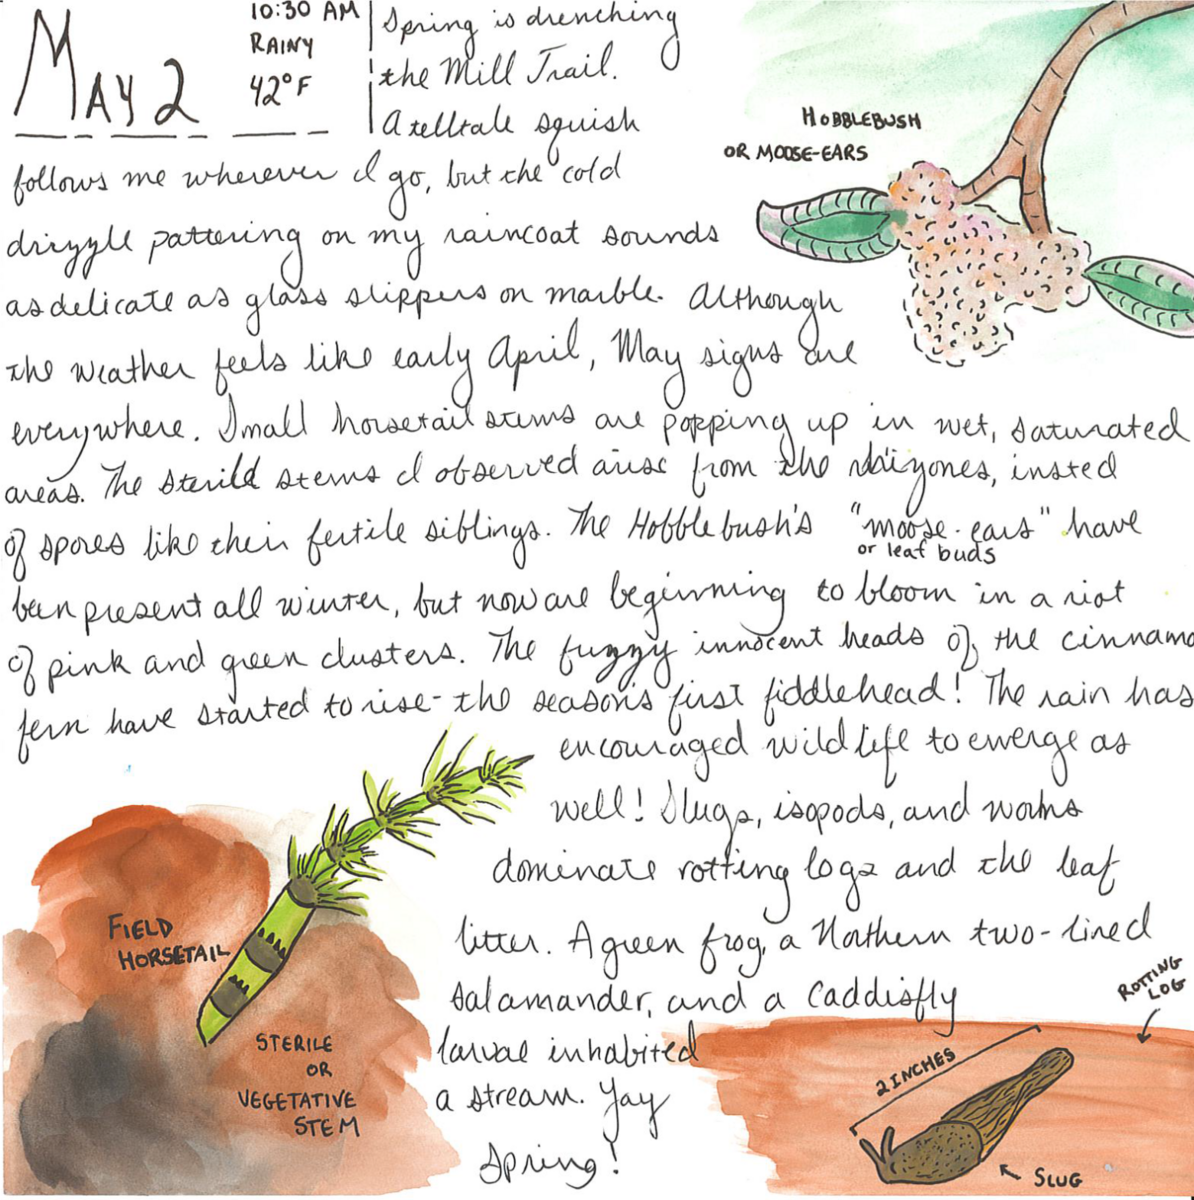 May 2
10:30 AM
RAINY
42°F
Spring is drenching
the Mill Trail.
A telltale squish
follows me wherever I go, but the cold
drizzle pattering on my raincoat sounds
as delicate as glass slippers on marble. Although
the weather feels like early April, May signs are
everywhere. Small horsetail stems are popping up in wet, saturated
areas. The sterile stems I observed arise from the rhizones, insted
of spores like their fertile siblings. The Hobblebush's "moose-ears" have
or leaf buds
been present all winter, but now are beginning to bloom in a riot
of pink and green clusters. The fuzzy innocent heads of the cinnamo
fern have started to rise - the season's first fiddlehead! The rain has
encouraged wildlife to emerge as
well! Slugs, isopods, and worms
dominate rotting logs and the leaf
litter. A green frog, a Northern two-lined
salamander, and a caddisfly
larvae inhabited
a stream. Yay
Spring!
HOBBLEBUSH
OR MOOSE-EARS
FIELD
HORSETAIL
STERILE
OR
VEGETATIVE
STEM
ROTTING
LOG
2 INCHES
SLUG